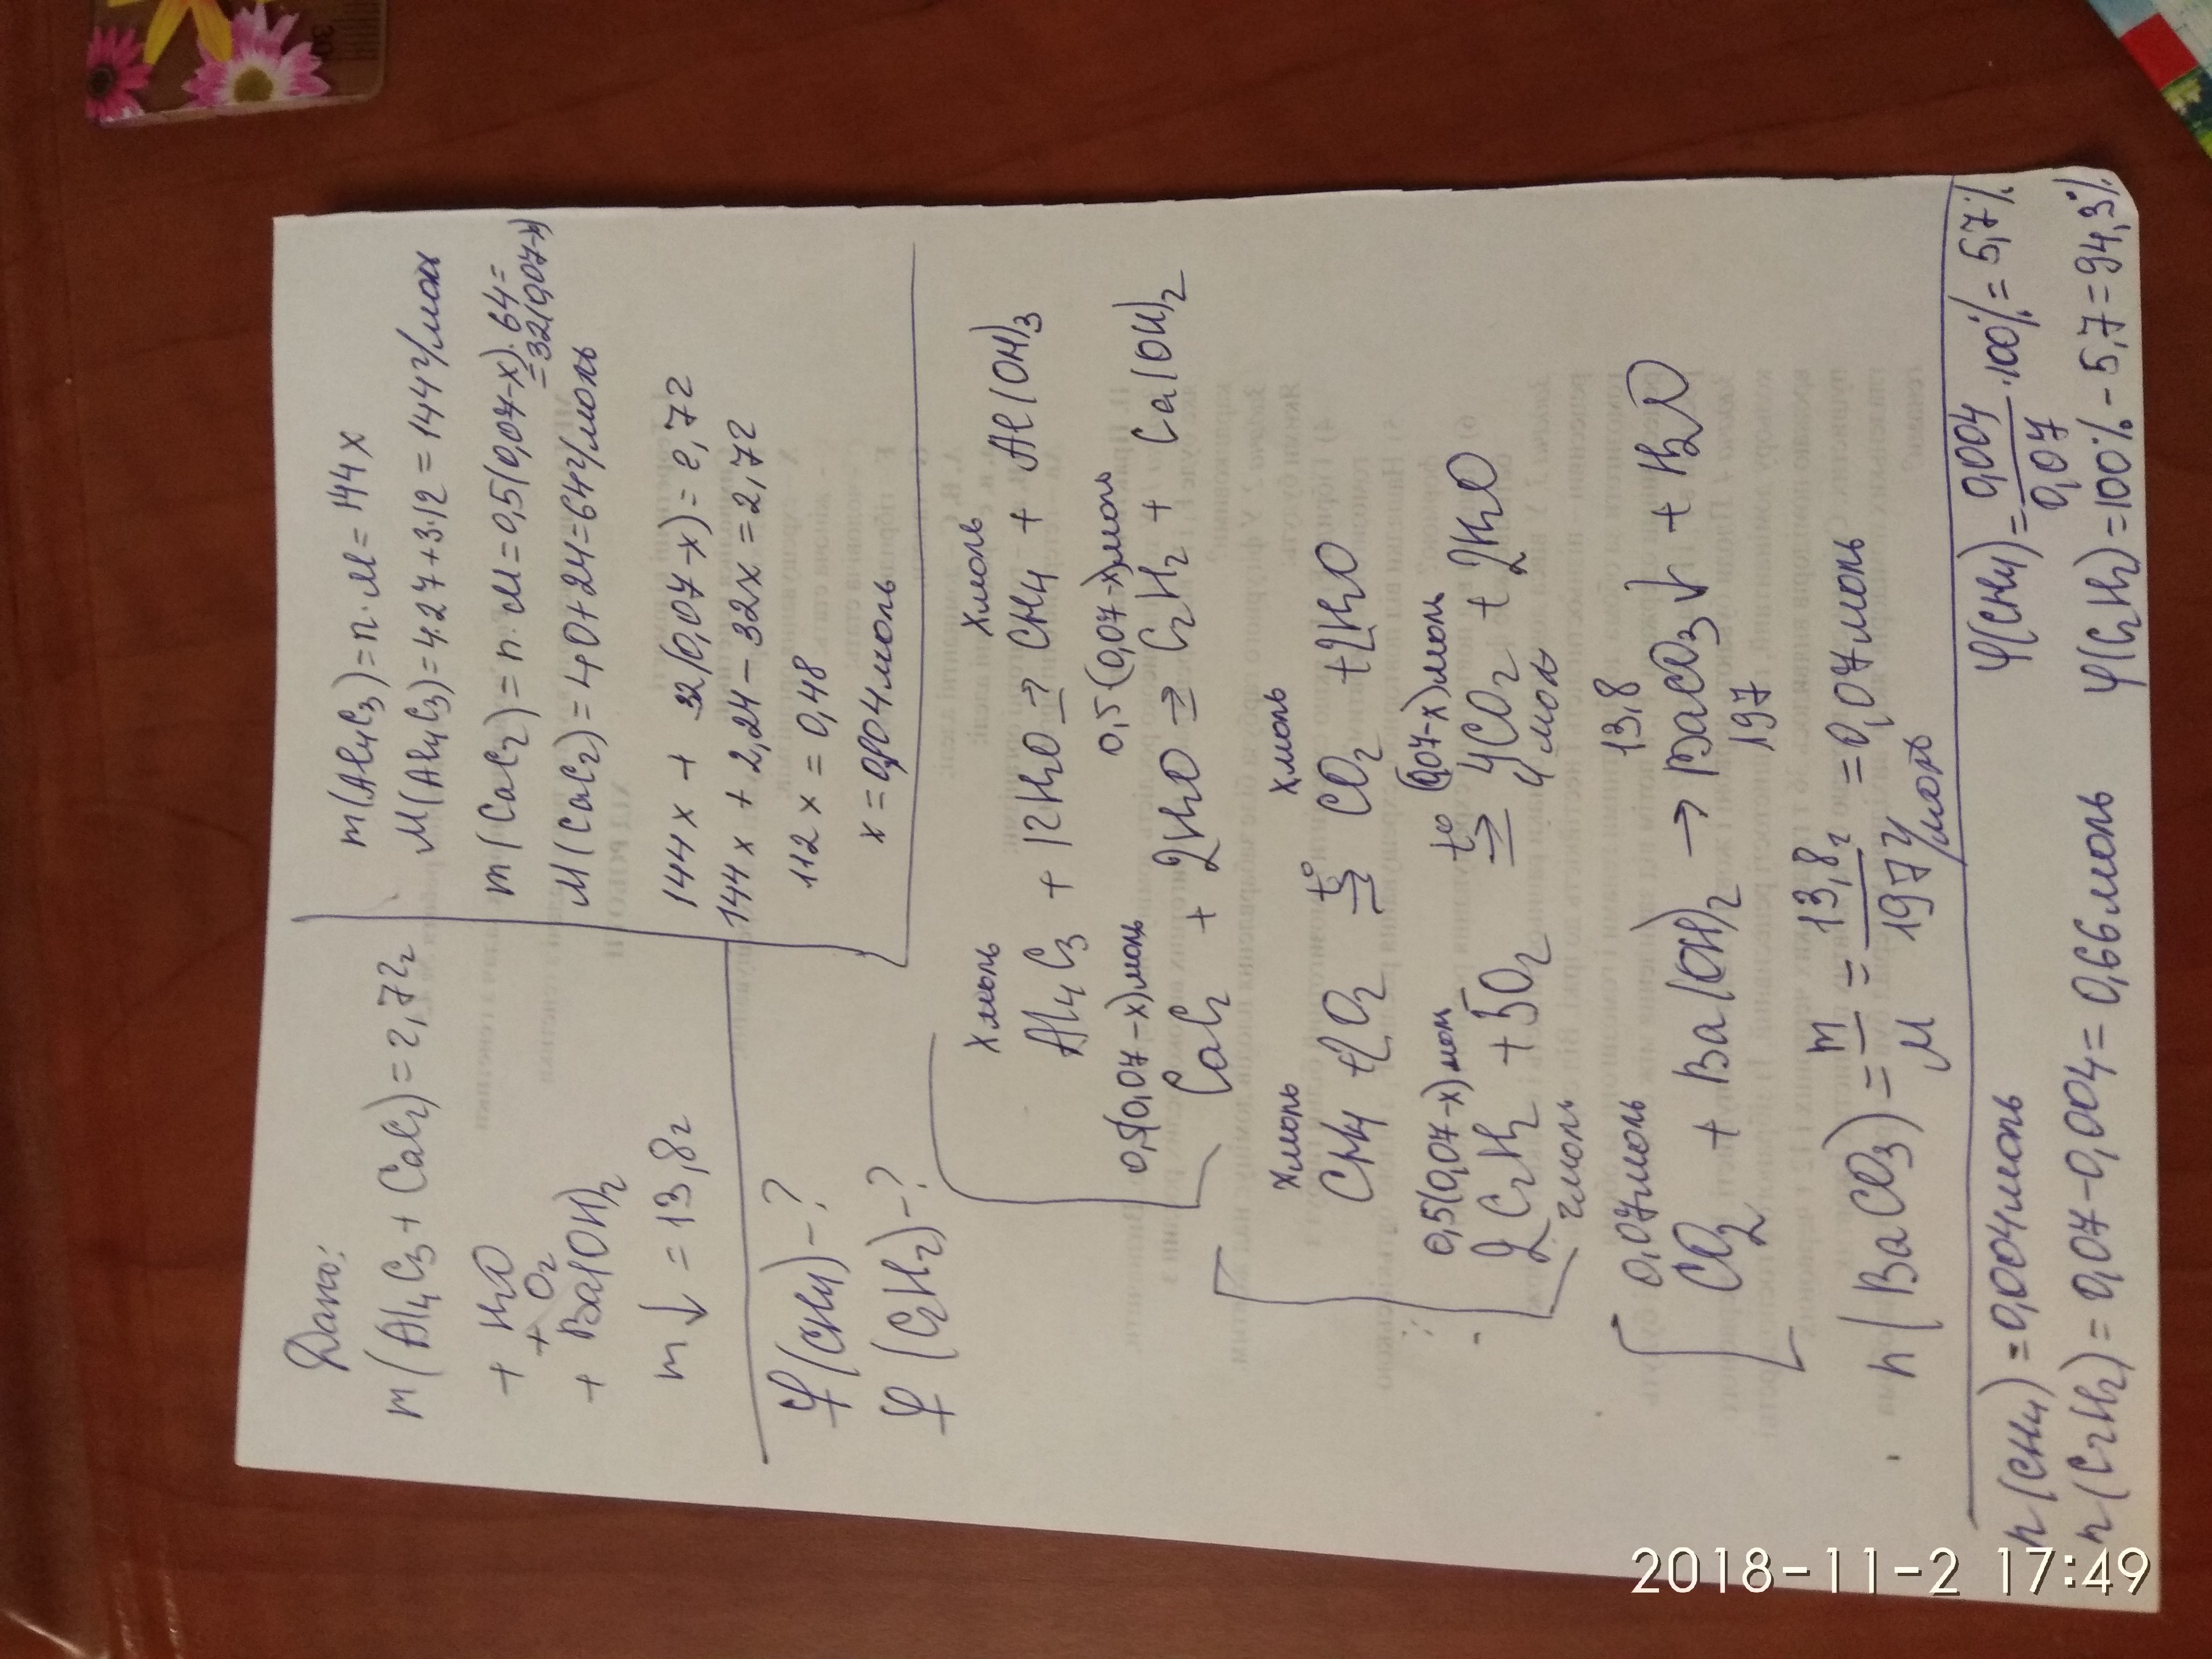 Дано:
m(Al4C3 + CaC2) = 2,72г
+ H2O
+ O2
+ Ba(OH)2
m↓ = 13,8г
φ(CH4) - ?
φ(C2H2) - ?
m(Al4C3) = n·M = 144x
M(Al4C3) = 4·27+3·12 = 144г/моль
m(CaC2) = n·M = 0,5(0,07-x)·64=
=32(0,07-x)
M(CaC2) = 40+24=64г/моль
144x + 32(0,07-x) = 2,72
144x + 2,24 - 32x = 2,72
112x = 0,48
x = 0,004моль
xмоль xмоль
Al4C3 + 12H2O → CH4 + Al(OH)3
0,5(0,07-x)моль 0,5·(0,07-x)моль
CaC2 + 2H2O → C2H2 + Ca(OH)2
xмоль xмоль
CH4 + 2O2 t° → CO2 + 2H2O
0,5(0,07-x)мол (0,07-x)моль
2C2H2 + 5O2 t° → 4CO2 + 2H2O
2моль 4моль
0,07моль 13,8
CO2 + Ba(OH)2 → BaCO3↓ + H2O
197
n(BaCO3) = m/M = 13,8г/197г/моль = 0,07моль
n(CH4) = 0,004моль
n(C2H2) = 0,07-0,004 = 0,66моль
φ(CH4) = 0,004/0,07 ·100% = 5,7%
φ(C2H2) = 100% - 5,7 = 94,3%
30
2018-11-2 17:49